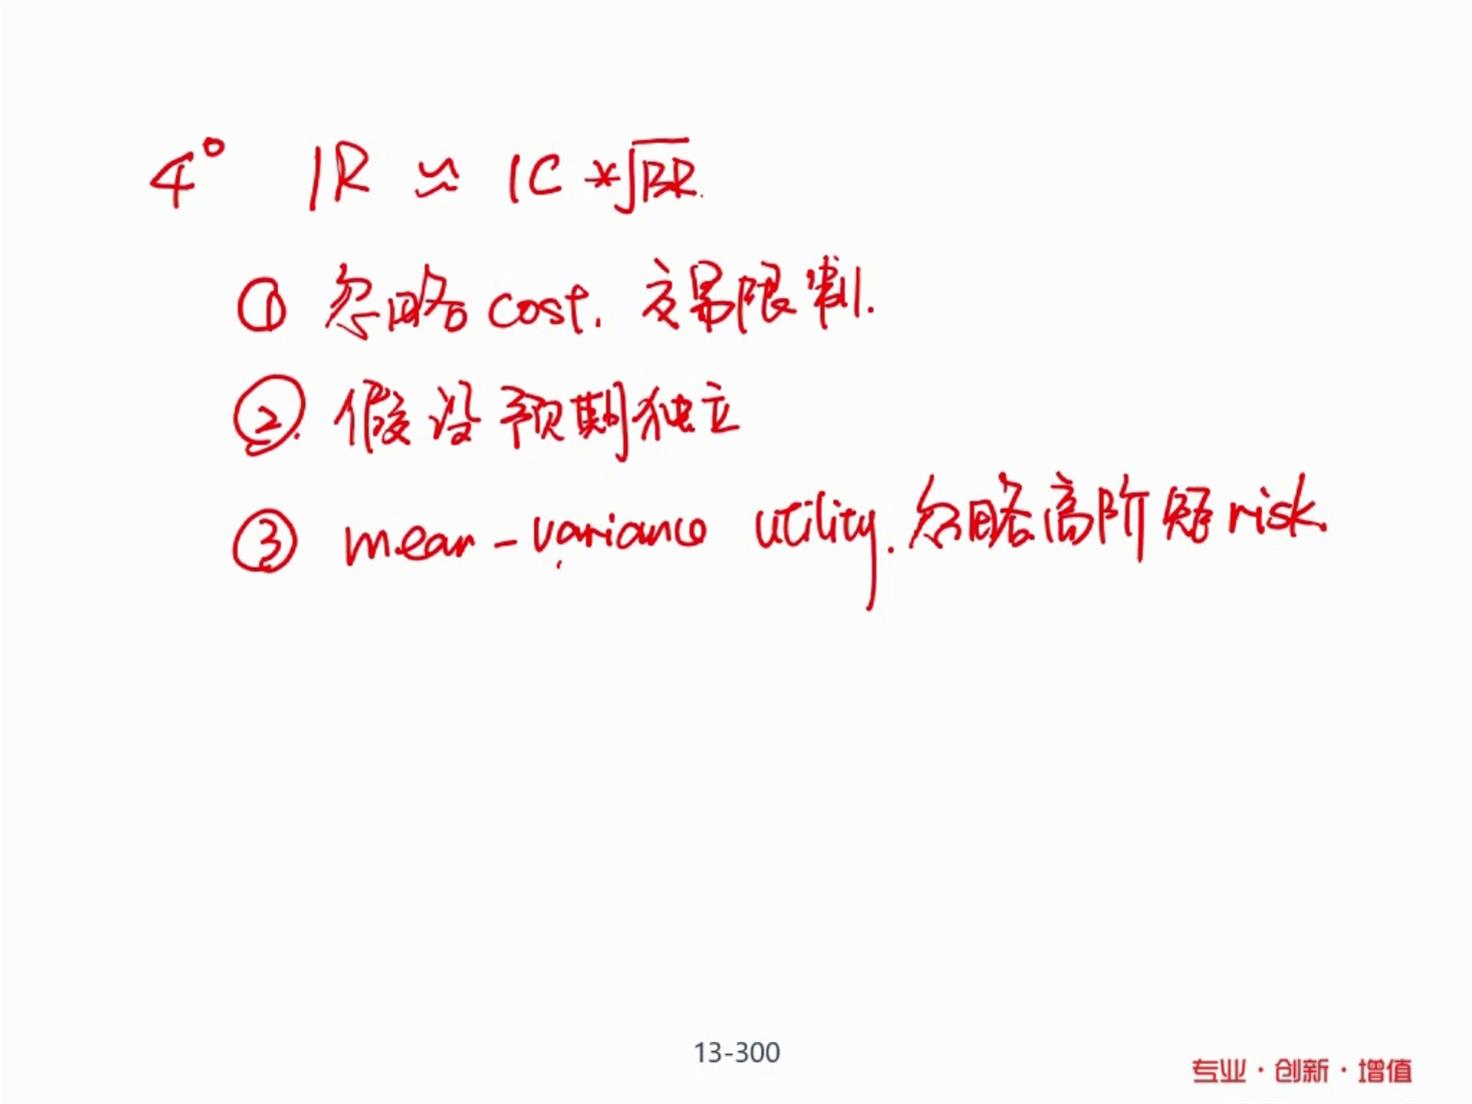 4° IR ≈ IC * √BR.
① 忽略 cost. 交易限制.
② 假设预期独立
③ mean-variance utility. 忽略高阶矩 risk.
13-300
专业·创新·增值